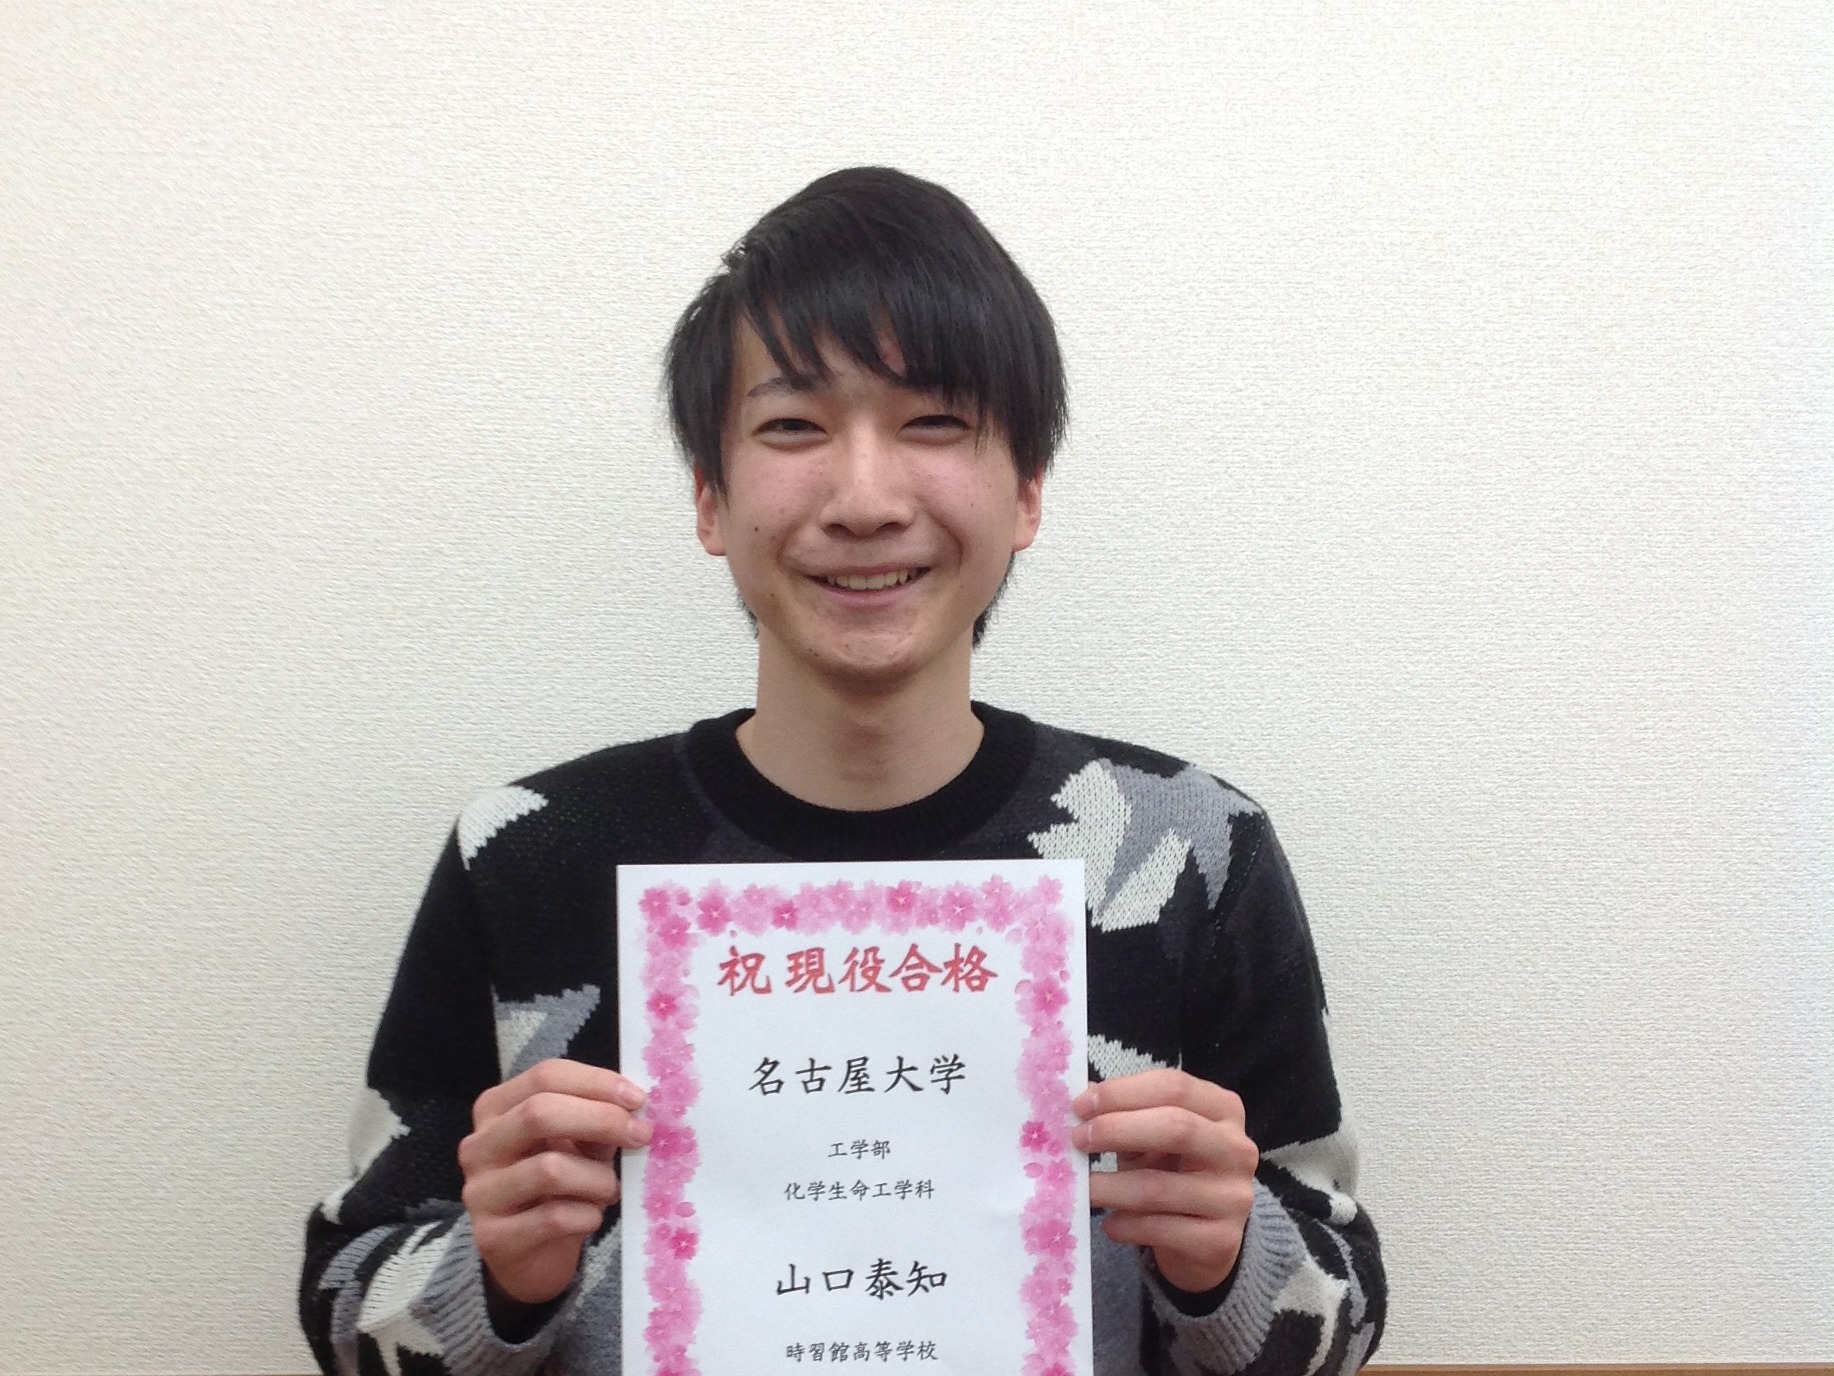 祝 現役合格
名古屋大学
工学部
化学生命工学科
山口泰知
時習館高等学校